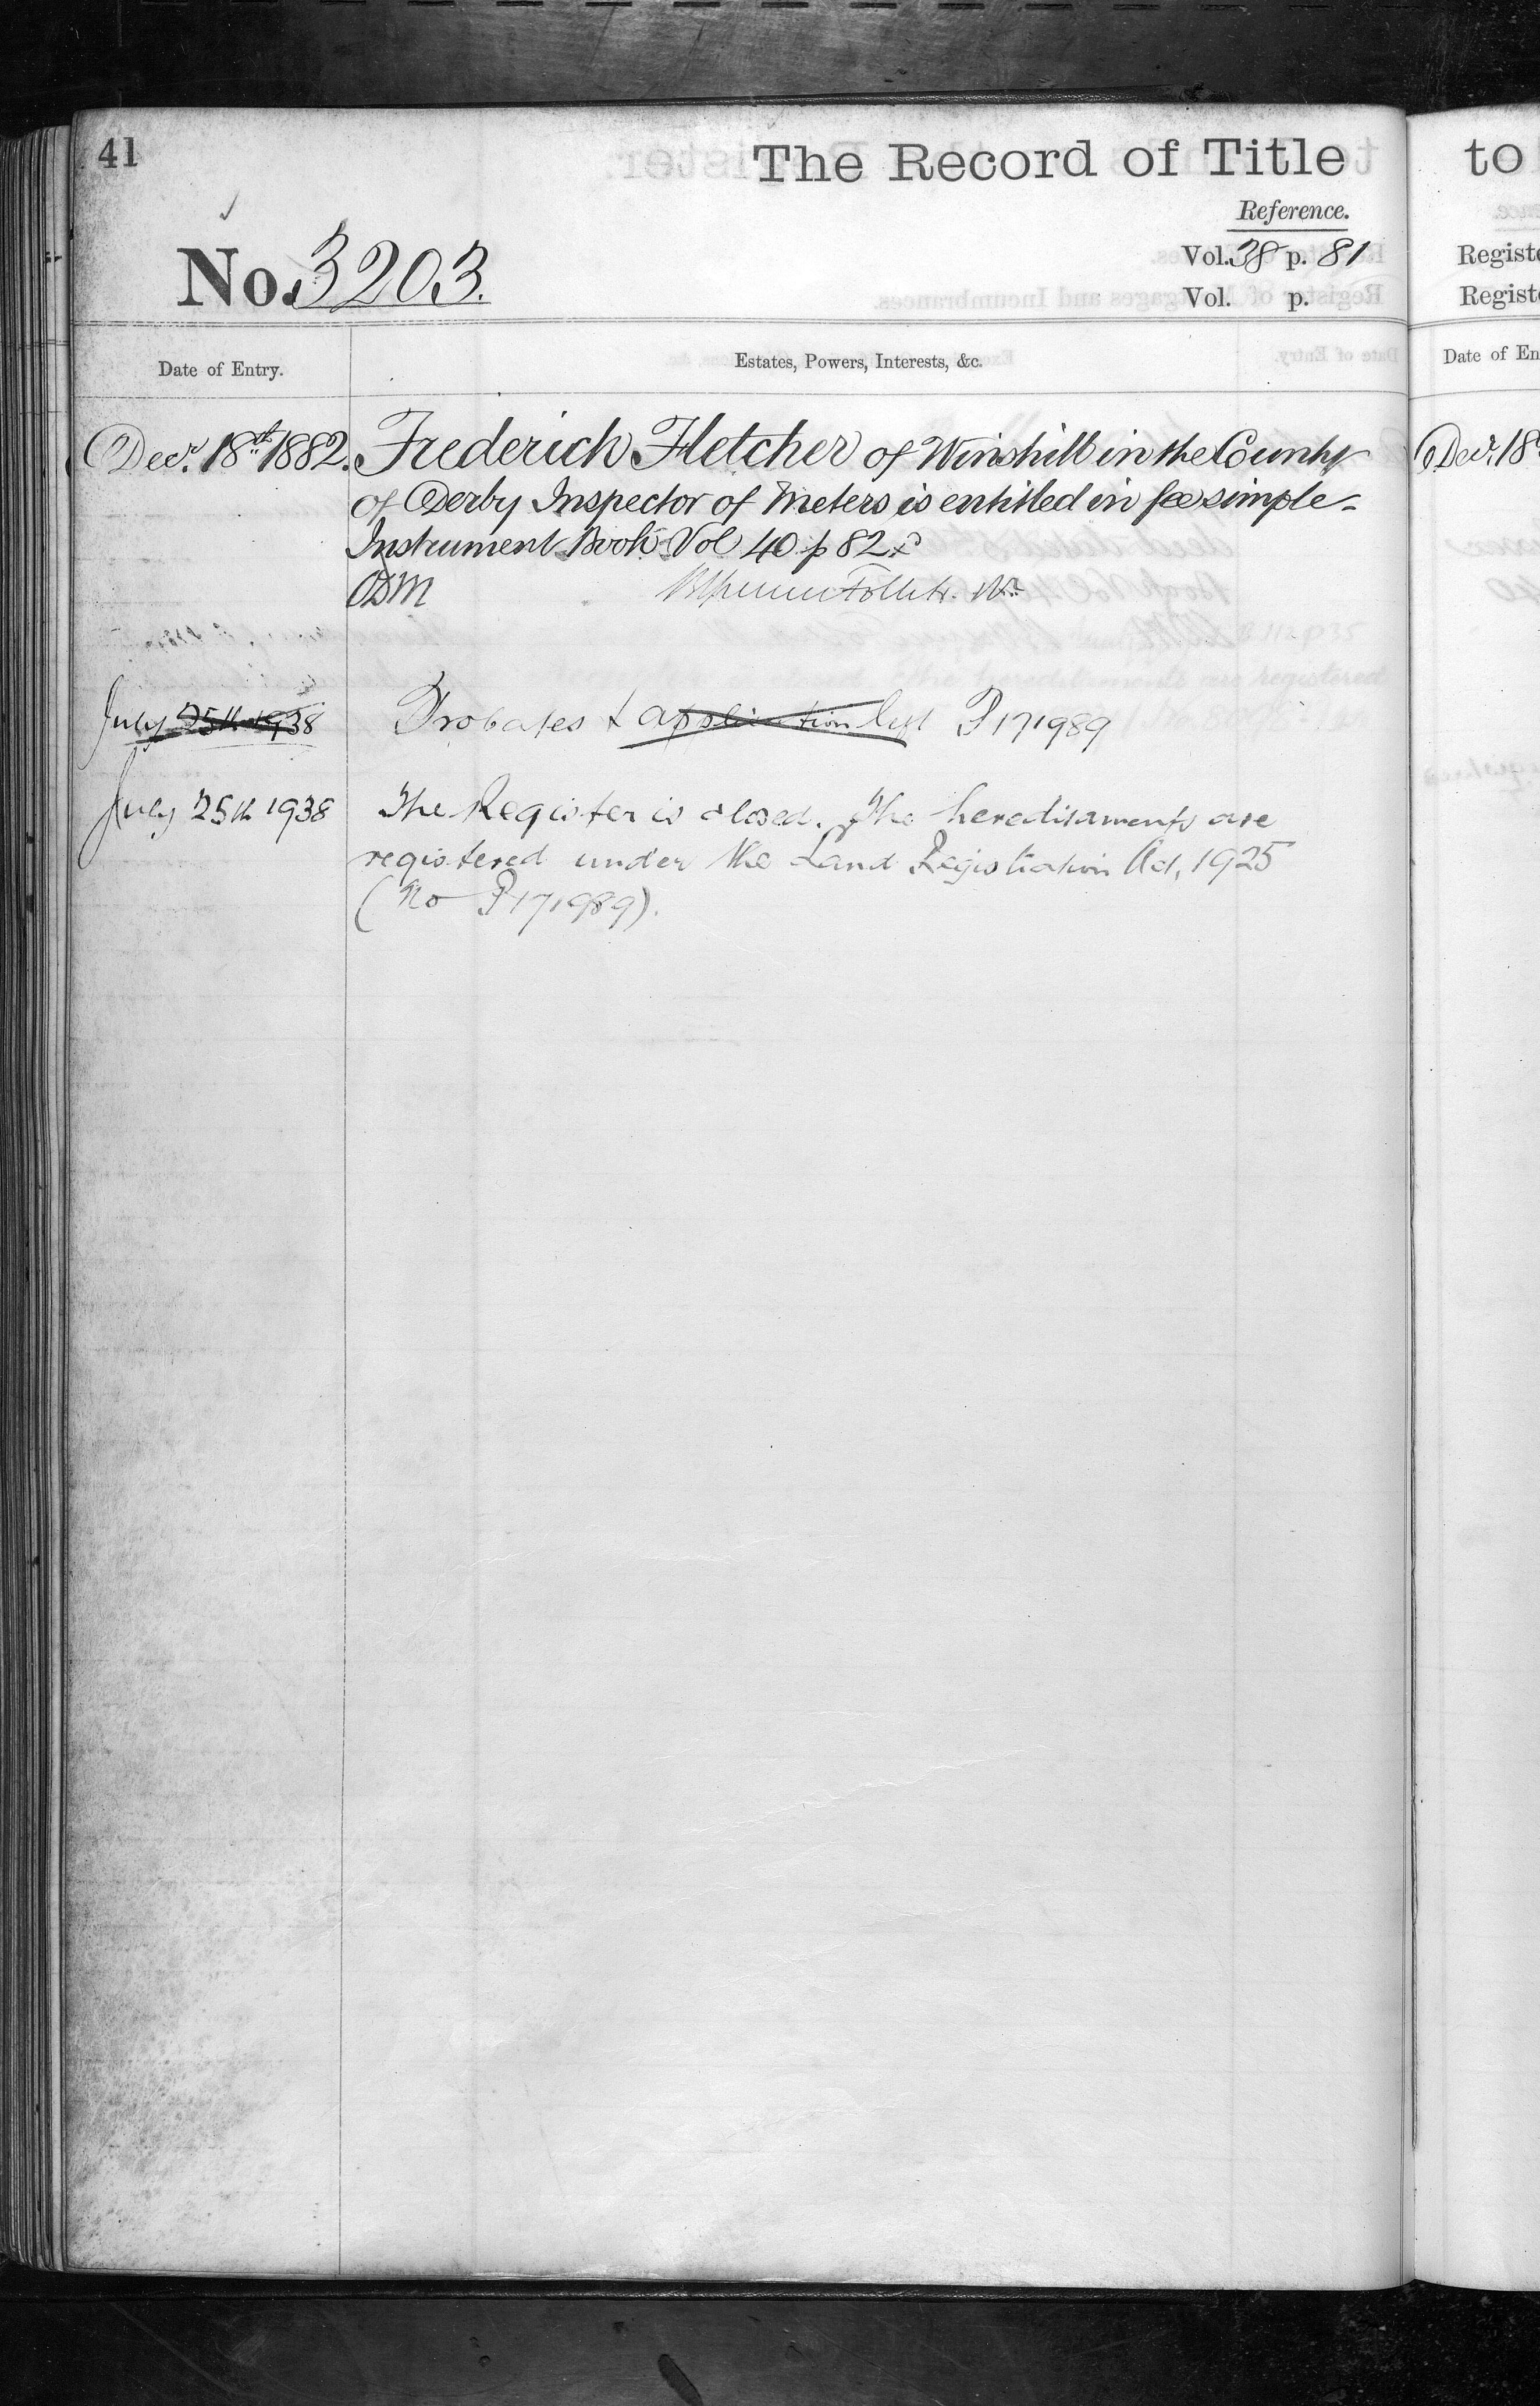 41
The Record of Title
Reference.
No. 3203.
Vol. 38 p. 81
Vol. p.
Date of Entry.
Estates, Powers, Interests, &c.
Decr. 18th 1882. Frederick Fletcher of Winshill in the County
of Derby Inspector of Meters is entitled in fee simple -
Instrument Book Vol 40 p 82
July 25th 1938 Probates & application left P171989
July 25th 1938 The Register is closed. The hereditaments are
registered under the Land Registration Act, 1925
(No P171989).
to
Registe
Registe
Date of En
Decr. 18